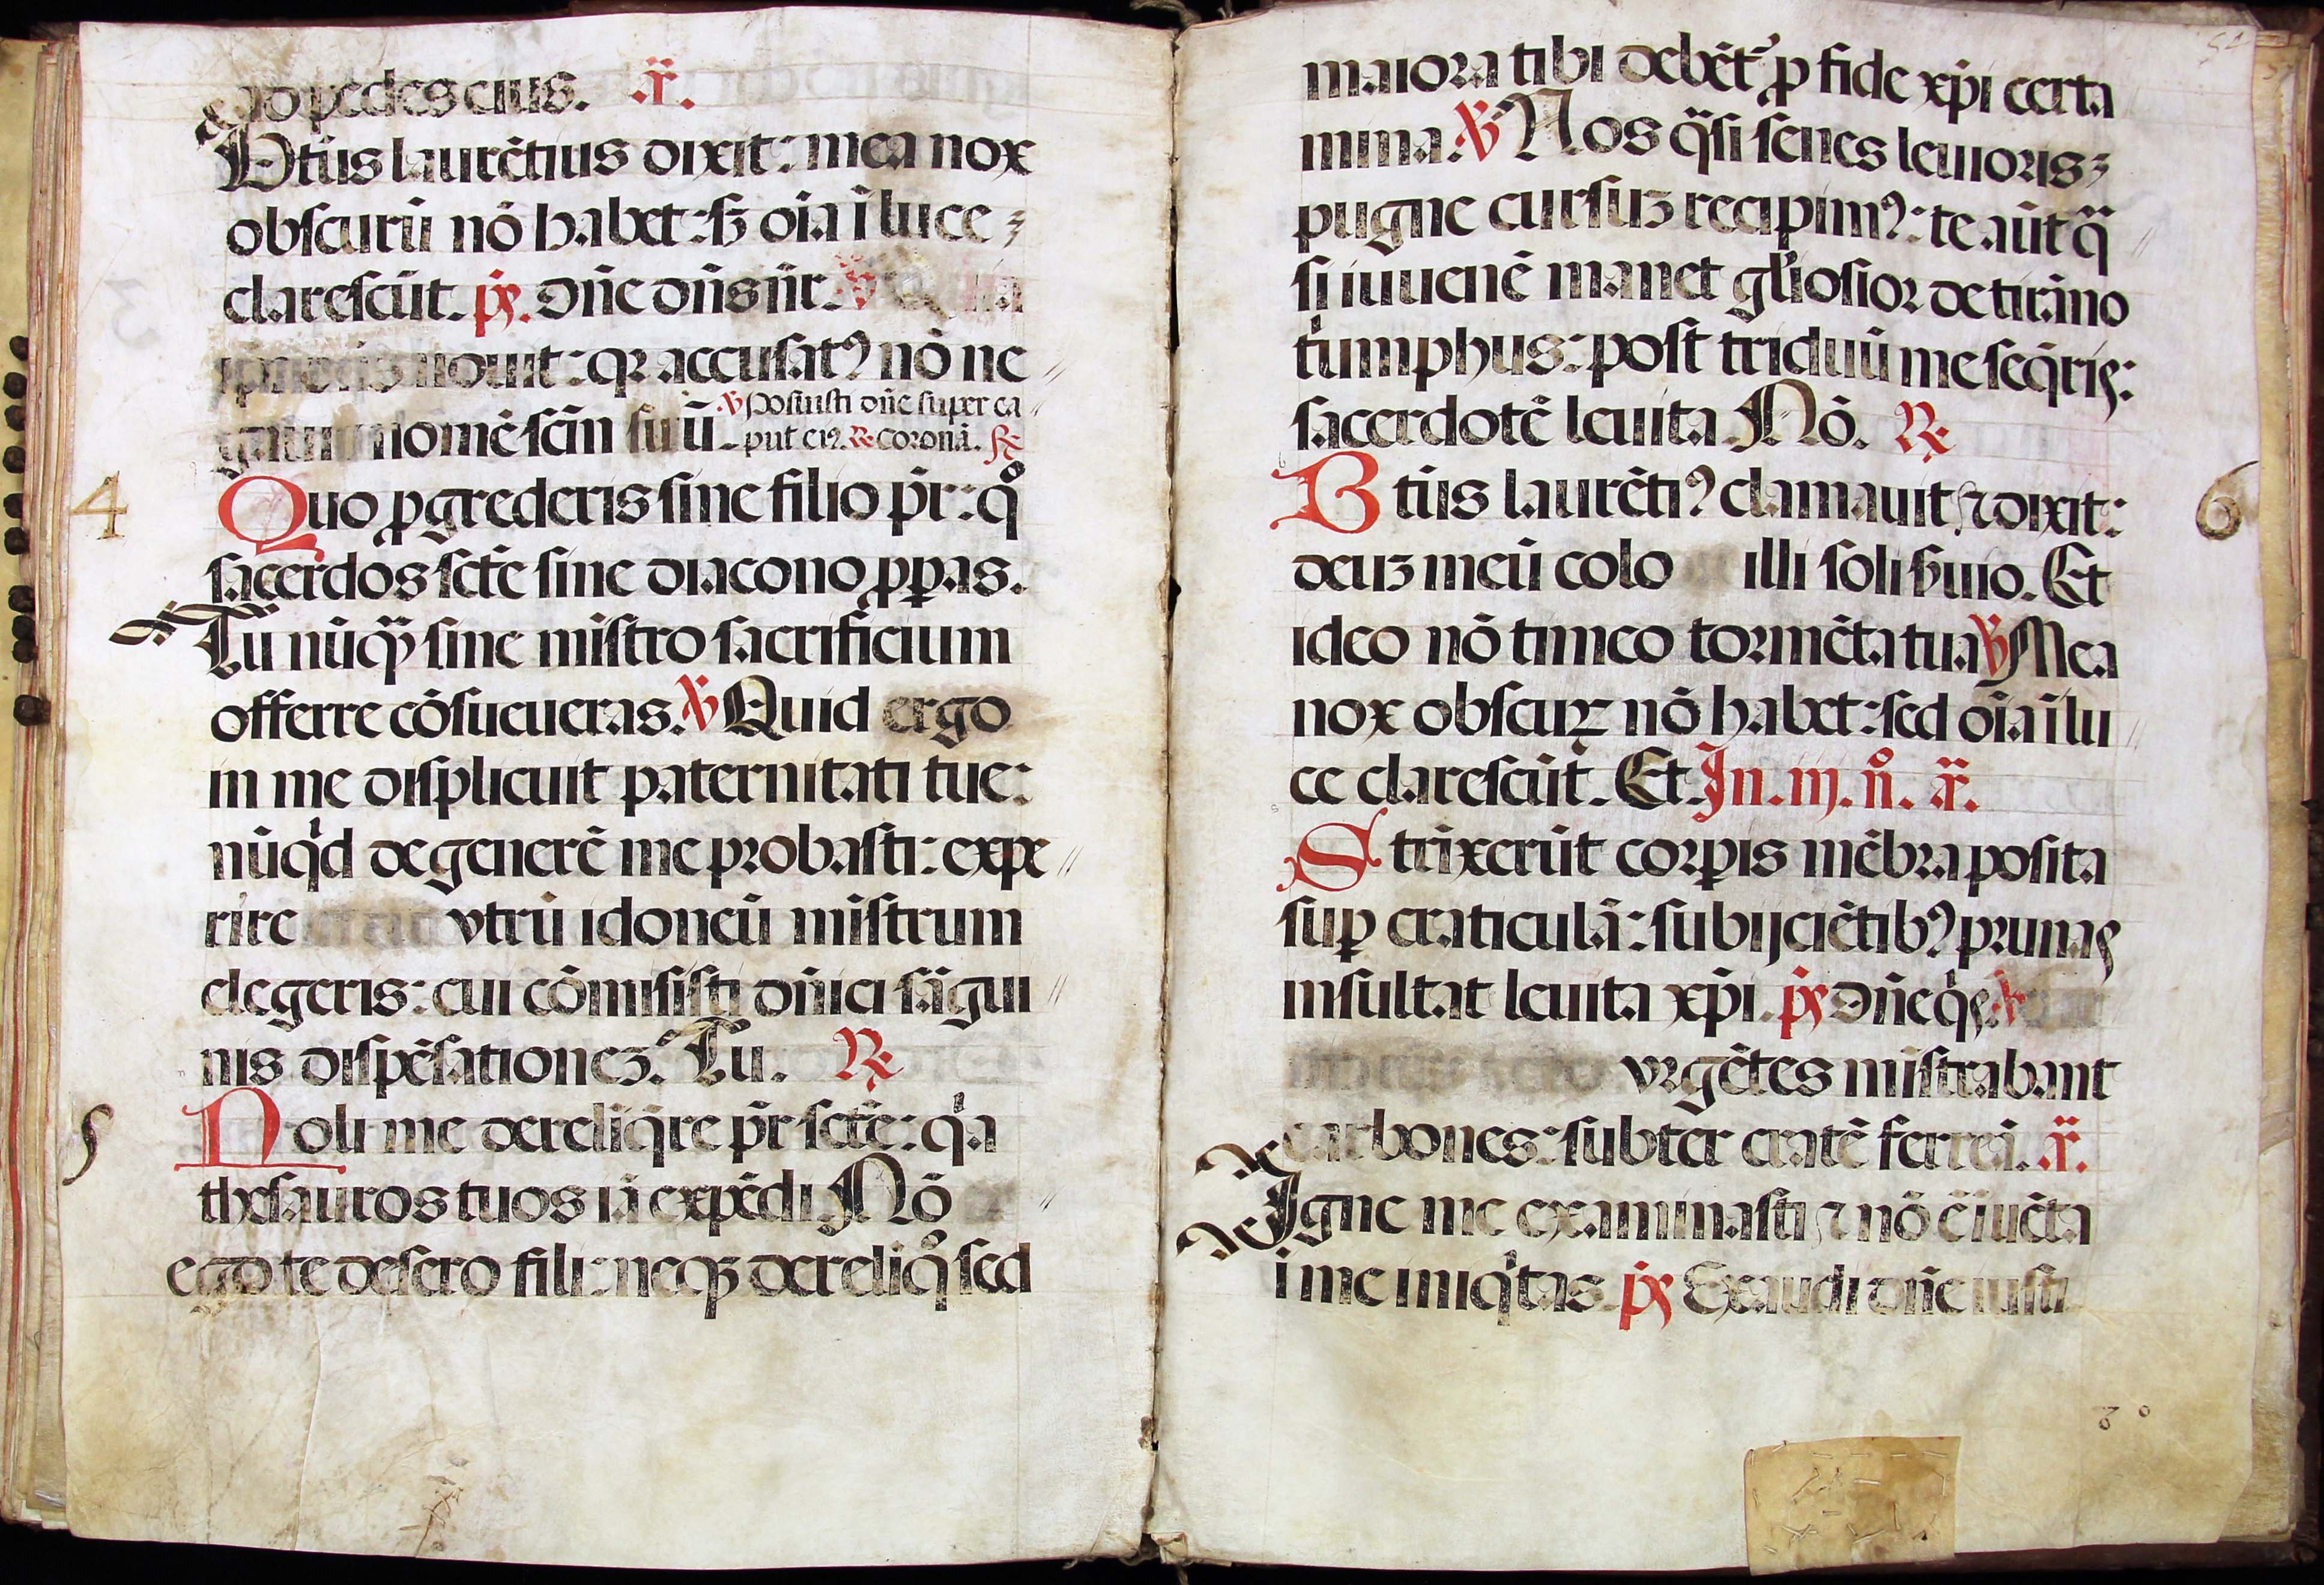 ad pedes eius. a̅.
Btūs laurētius dixit: mea nox
obscurū nō habet: sʒ oīa ī luce
clarescūt. p̄s. Dn̄e dn̄s nr̄. ℣
nouit: qꝛ accusatꝰ nō ne
nomē scm̄ suū. ℣ Posuisti dn̄e super ca
put eiꝰ. ℟ Coronā. ℟
4
Quo ꝓgrederis sine filio pr̄: qº
sacerdos scte̅ sine diacono ꝓpas.
Tu nūqꝫ sine mīstro sacrificium
offerre cōsueueras. ℣ Quid ergo
in me displicuit paternitati tue:
nūqd degenerē me probasti: expe
rire vtrū idoneū mīstrum
elegeris: cui cōmisisti dn̄ici sāgui
nis dispēsationeʒ. Tu. ℟
5
Noli me derelīqre pr̄ scte̅: qa
thesauros tuos iā expēdi Nō
ego te desero fili: neqʒ derelīqº sed
maiora tibi debēt̄ ꝓ fide xp̄i certa
mina. ℣ Nos qsi senes leuioris
pugne cursuʒ recipimꝰ: te aūt q
si iuuenē manet gl̄iosior de tirāno
t'umphus: post triduū me seq̄ris:
sacerdotē leuita Nō. ℟
6
Btūs laurētiꝰ clamauit ⁊ dixit:
deuʒ meū colo illi soli s̄uio. Et
ideo nō timeo tormēta tua ℣ Mea
nox obscuꝝ nō habet: sed oīa ī lu
ce clarescūt. Et. In. iij. n̊. a̅.
Strixerūt corꝑis mēbra posita
suꝑ craticulā: subijciētibꝰ prunas
insultat leuita xp̄i. p̄s Dn̄e q̄s. ℣
vrgētes mīstrabant
carbones: subter cratē ferreā. a̅.
Igne me examinasti ⁊ nō ē īuēta
ī me iniqtas. p̄s Exaudi dn̄e iusti